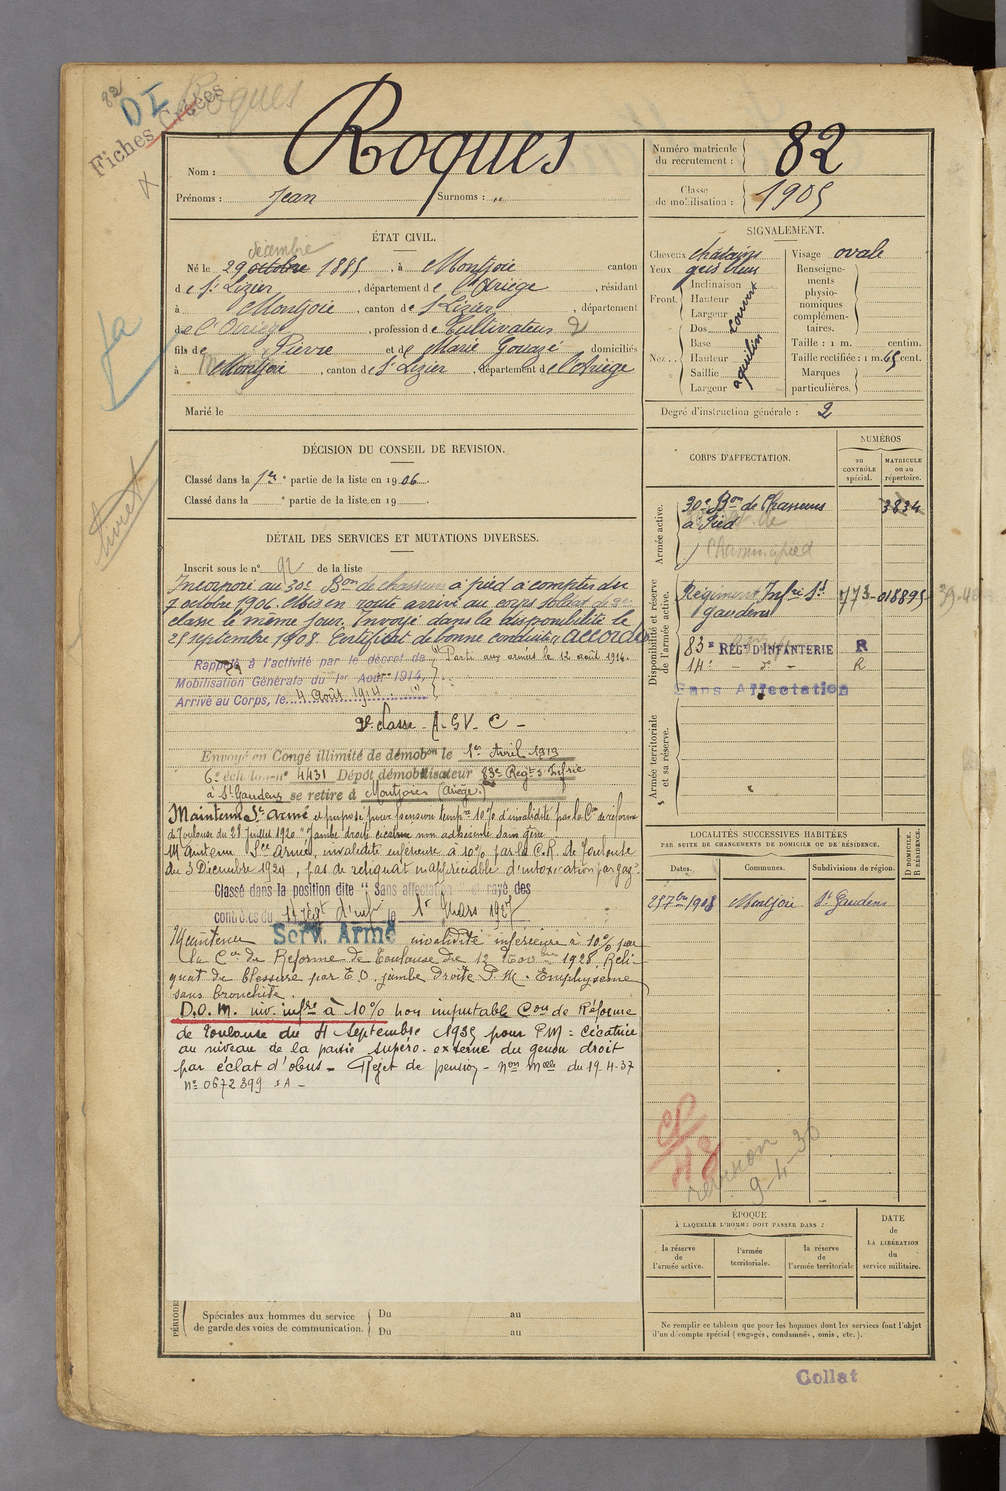 82
DI
Roques
Fiches Créées
Nom : Roques
Prénoms : Jean Surnoms : "
Numéro matricule du recrutement : 82
Classe de mobilisation : 1905
ÉTAT CIVIL.
décembre
Né le 29 octobre 1885, à Montjoie canton
de St Lizier, département de l'Ariège, résidant
à Montjoie, canton de St Lizier, département
de l'Ariège, profession de Cultivateur 2
fils de Pierre et de Marie Gouazé domiciliés
à Montjoie, canton de St Lizier, département de l'Ariège
Marié le
SIGNALEMENT.
Cheveux châtains
Yeux gris bleus
Front. Inclinaison Hauteur Largeur couvert
Nez.. Dos Base Hauteur Saillie Largeur aquilin
Visage ovale
Renseignements physionomiques complémentaires.
Taille : 1 m. centim.
Taille rectifiée : 1 m. 65 cent.
Marques particulières.
Degré d'instruction générale : 2
livret
DÉCISION DU CONSEIL DE REVISION.
Classé dans la 1re partie de la liste en 1906.
Classé dans la e partie de la liste en 19
DÉTAIL DES SERVICES ET MUTATIONS DIVERSES.
Inscrit sous le n° 92 de la liste
Incorporé au 30e Bon de chasseurs à pied à compter du
7 octobre 1906. Mis en route arrivé au corps soldat de 2e
classe le même jour. Envoyé dans la disponibilité le
25 septembre 1908. Certificat de bonne conduite "accordé"
Rappelé à l'activité par le décret de
Mobilisation Générale du 1er Août 1914,
Arrivé au Corps, le 4 août 1914
Parti aux armées le 12 août 1914.
2e classe - A - G V - C -
Envoyé en Congé illimité de démobon le 1er Avril 1919
6e échelon n° 4431 Dépôt démobilisateur 83e Regt d'Infrie
à St Gaudens se retire à Montjoie (Ariège.)
Maintenu Sce armé et proposé pour pension tempre 10% d'invalidité par la Con de réforme
de Toulouse du 28 Juillet 1920 "Jambe droite cicatrice non adhérente sans gêne
Maintenu Sce Armé, invalidité inférieure à 10% par la C.R. de Toulouse
du 3 Décembre 1924, pas de reliquat inappréciable d'intoxication par gaz.
Classé dans la position dite " Sans affectation " et rayé des
contrôles du 14 régt d'infie le 1er Mars 1927
Maintenu Serv. Armé invalidité inférieure à 10% par
la Con de Réforme de Toulouse du 12 Novbre 1928 Reli-
quat de blessure par E.O. jambe droite P.M. Emphysème
sans bronchite.
D.O.M. inv. infre à 10% non imputable Con de Réforme
de Toulouse du 4 Septembre 1935 pour P.M : Cicatrice
au niveau de la partie supéro-externe du genou droit
par éclat d'obus - Rejet de pension - Non Melle du 19.4.37
N° 0672399 S A -
CORPS D'AFFECTATION.
NUMÉROS
au CONTRÔLE spécial.
MATRICULE ou au répertoire.
Armée active.
30e Bon de Chasseurs à Pied 3834
Disponibilité et réserve de l'armée active.
Régiment Infrie St Gaudens 773 018895
83e RÉGt D'INFANTERIE R
14e - do - R
Sans Affectation
Armée territoriale et sa réserve.
LOCALITÉS SUCCESSIVES HABITÉES
PAR SUITE DE CHANGEMENTS DE DOMICILE OU DE RÉSIDENCE.
Dates. Communes. Subdivisions de région. D DOMICILE. R RÉSIDENCE.
25 7bre 1908 Montjoie St Gaudens
revision
9-4-30
ÉPOQUE
À LAQUELLE L'HOMME DOIT PASSER DANS :
la réserve de l'armée active.
l'armée territoriale.
la réserve de l'armée territoriale
DATE de LA LIBÉRATION du service militaire.
PÉRIODE
Spéciales aux hommes du service de garde des voies de communication.
Du au
Du au
Ne remplir ce tableau que pour les hommes dont les services font l'objet
d'un décompte spécial (engagés, condamnés, omis, etc.).
Collat